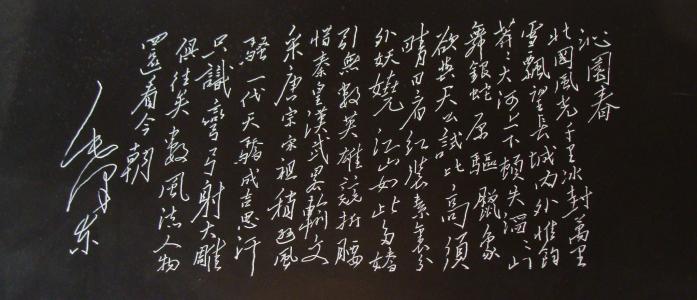 沁園春
北國風光千里冰封萬里
雪飄望長城內外惟餘
莽々大河上下頓失滔々山
舞銀蛇原驅臘象
欲與天公試比高須
晴日看紅裝素裹分
外妖嬈江山如此多嬌
引無數英雄競折腰
惜秦皇漢武畧輸文
采唐宗宋祖稍遜風
騷一代天驕成吉思汗
只識彎弓射大雕
俱往矣數風流人物
還看今朝
毛澤東